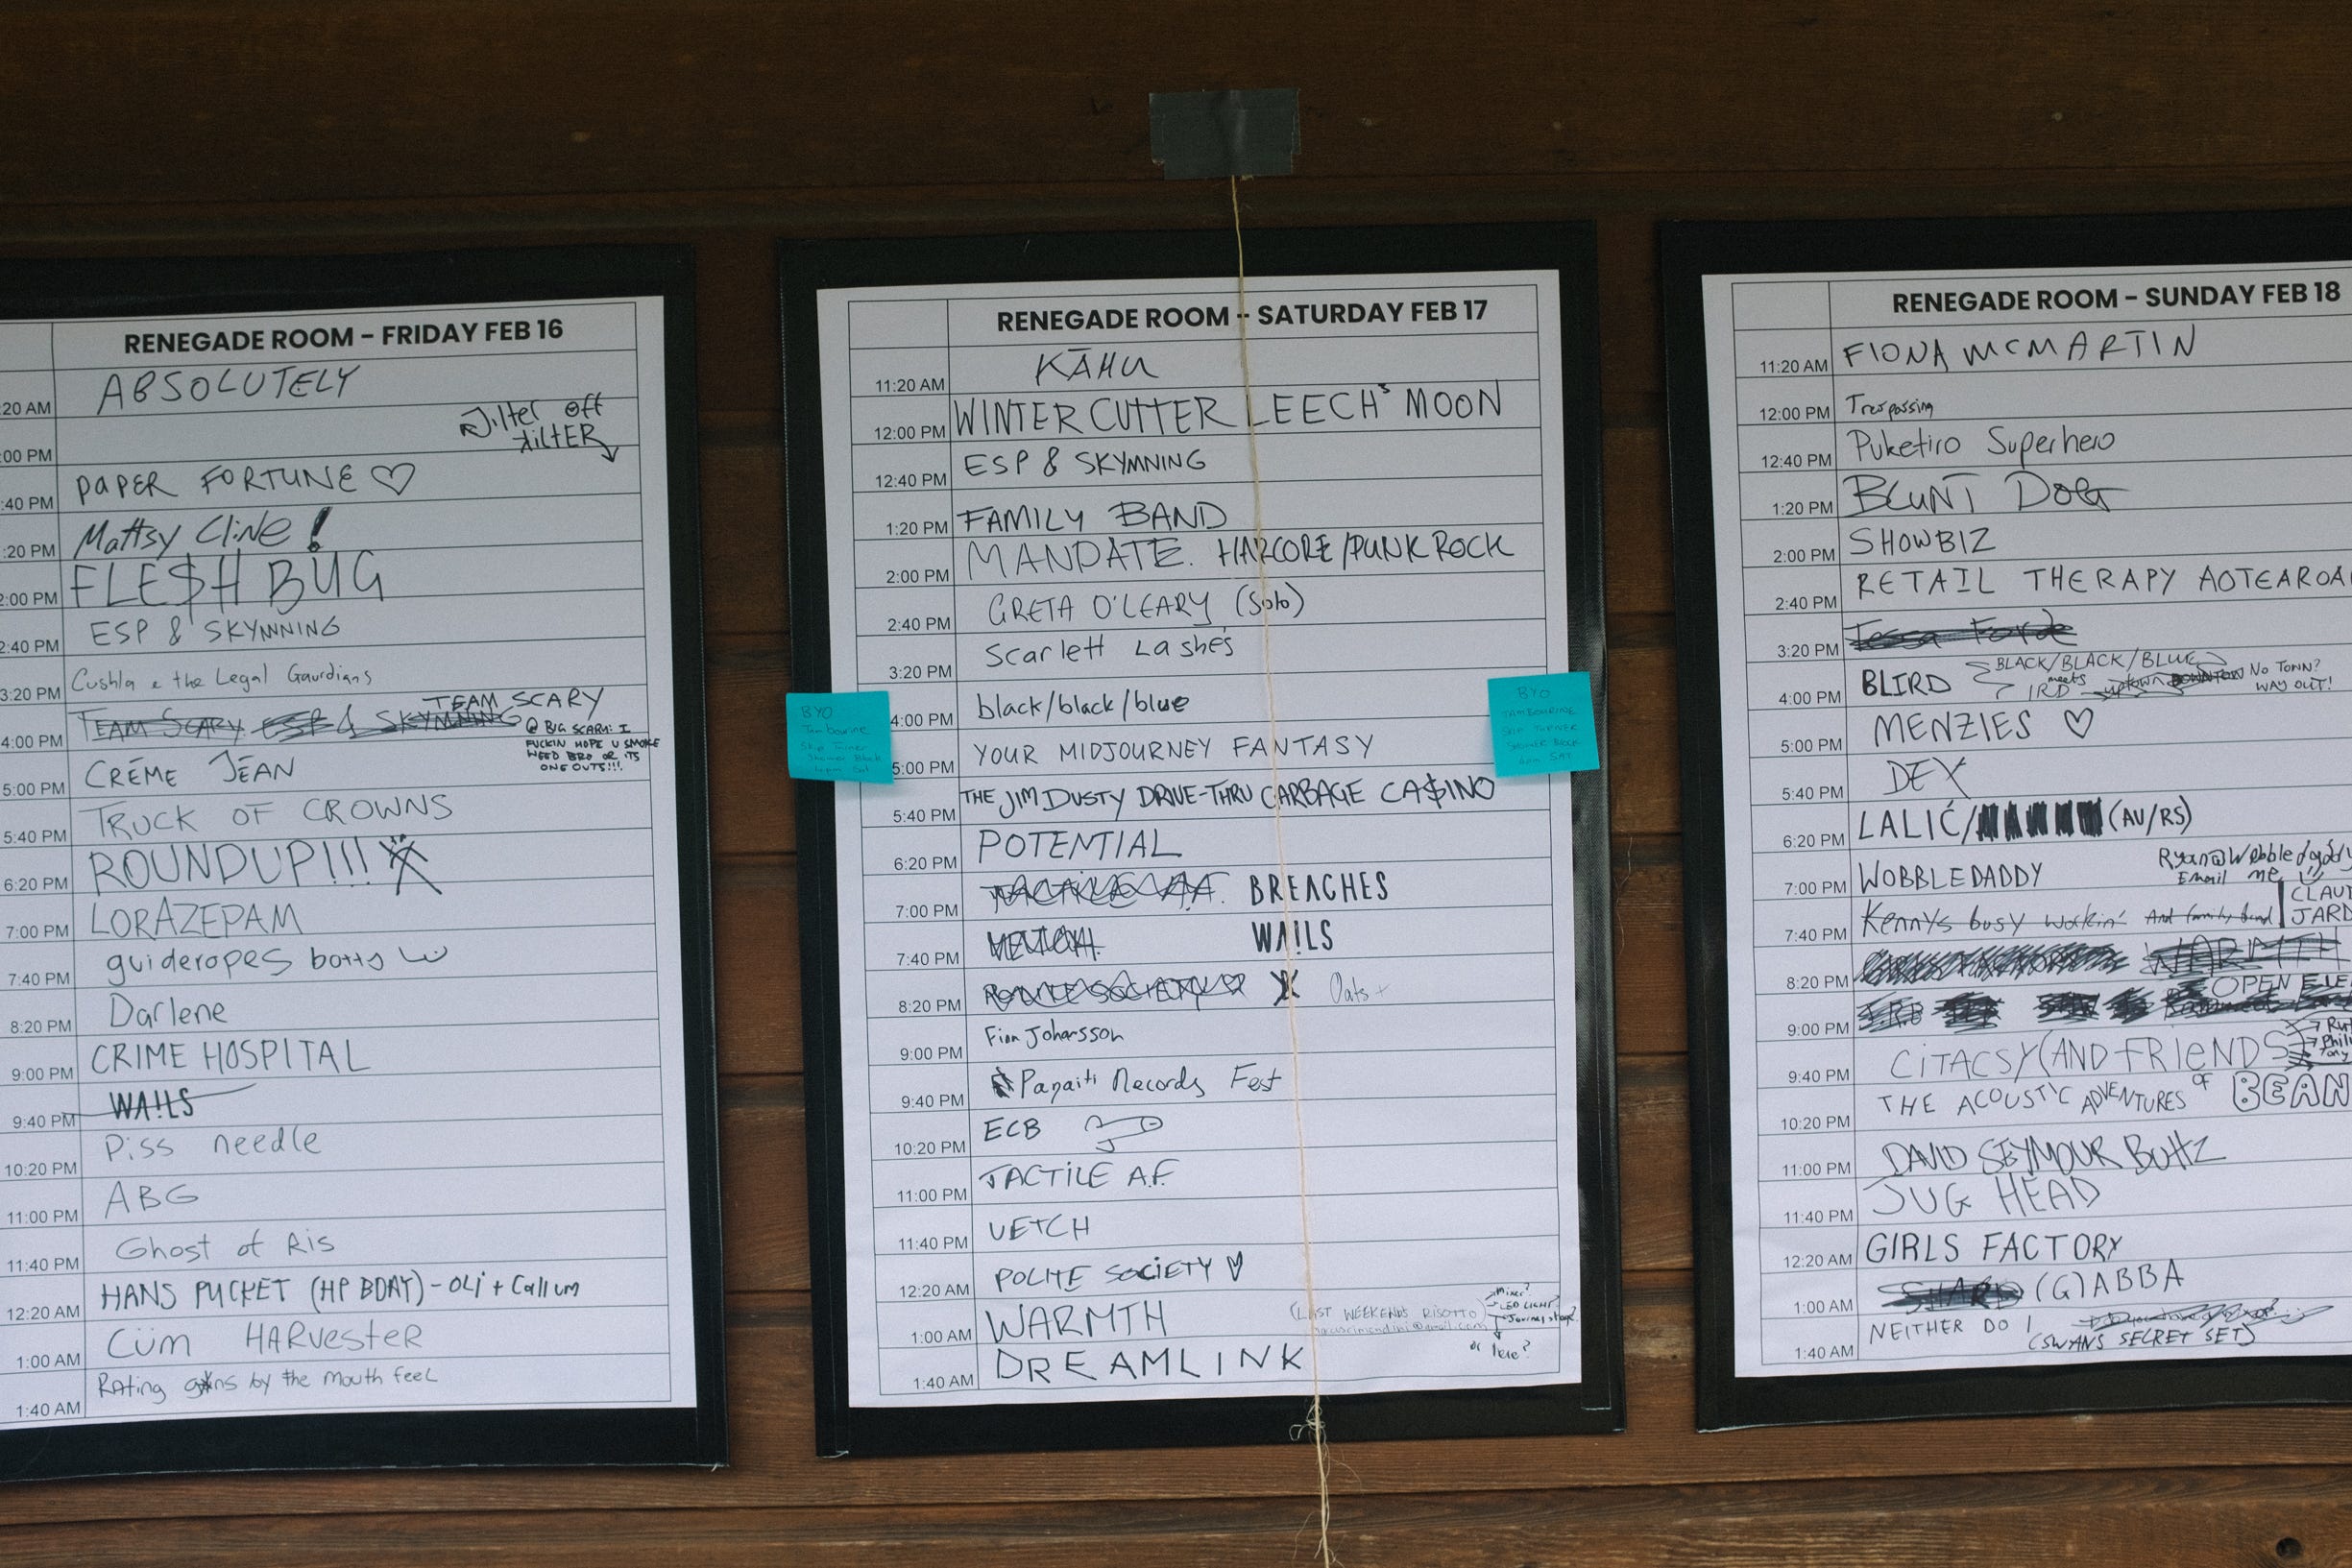 RENEGADE ROOM – FRIDAY FEB 16
:20 AM ABSOLUTELY
:00 PM Jilter off
kilTER
:40 PM PAPER FORTUNE ♡
:20 PM Mattsy Cline!
2:00 PM FLE$H BUG
2:40 PM ESP & SKYMNING
3:20 PM Cushla & the Legal Gaurdians
TEAM SCARY
4:00 PM TEAM SCARY ESP & SKYMNING
@ BIG SCARM: I
FUCKIN HOPE U SMOKE
WEED BRO OR ITS
ONE OUTS!!!.
5:00 PM CRĒME JĒAN
5:40 PM TRUCK OF CROWNS
6:20 PM ROUNDUP!!!
7:00 PM LORAZEPAM
7:40 PM guideropes botty
8:20 PM Darlene
9:00 PM CRIME HOSPITAL
9:40 PM WA!LS
10:20 PM Piss needle
11:00 PM ABG
11:40 PM Ghost of Ris
12:20 AM HANS PUCKET (HP BDAY) – OLi + Callum
1:00 AM Cüm HARvesteR
1:40 AM Rating guns by the mouth feel
RENEGADE ROOM – SATURDAY FEB 17
11:20 AM KĀHU
12:00 PM WINTER CUTTER LEECH'S MOON
12:40 PM ESP & SKYMNING
1:20 PM FAMILY BAND
2:00 PM MANDATE. HARCORE/PUNK ROCK
2:40 PM GRETA O'LEARY (Solo)
3:20 PM Scarlett Lashes
4:00 PM black/black/blue
5:00 PM YOUR MIDJOURNEY FANTASY
5:40 PM THE JIM DUSTY DRIVE-THRU GARBAGE CA$INO
6:20 PM POTENTIAL
7:00 PM TACTILE A.F. BREACHES
7:40 PM VETCH WA!LS
8:20 PM POLITE SOCIETY ♡ Oats +
9:00 PM Finn Johansson
9:40 PM Papaiti Records Fest
10:20 PM ECB
11:00 PM TACTILE A.F.
11:40 PM VETCH
12:20 AM POLITE SOCIETY ♡
1:00 AM WARMTH
(LAST WEEKENDS RISOTTO)
Mixer?
LED LIGHT?
or here?
1:40 AM DREAMLINK
BYO
Tambourine
BYO
TAMBOURINE
SKIP TURNER
SHOWER BLOCK
4pm SAT
RENEGADE ROOM – SUNDAY FEB 18
11:20 AM FIONA MCMARTIN
12:00 PM Trespassing
12:40 PM Puketiro Superhero
1:20 PM BLUNT DOG
2:00 PM SHOWBIZ
2:40 PM RETAIL THERAPY AOTEAROA
3:20 PM Tessa Forde
4:00 PM BLIRD
BLACK/BLACK/BLUE
meets
IRD UPTOWN DOWNTOWN NO TOWN?
WAY OUT!
5:00 PM MENZIES ♡
5:40 PM DEX
6:20 PM LALIĆ/ (AU/RS)
7:00 PM WOBBLEDADDY
Ryan@Wobbledaddy
Email me
7:40 PM Kennys busy workin' And family band
CLAU
JARD
8:20 PM WARMTH
OPEN ELE
9:00 PM I.R.D
9:40 PM CITACSY (AND FRIENDS)
10:20 PM THE ACOUSTIC ADVENTURES OF BEAN
11:00 PM DAVID SEYMOUR BUTTZ
11:40 PM JUG HEAD
12:20 AM GIRLS FACTORY
1:00 AM SHARD (G)ABBA
1:40 AM NEITHER DO I
(SWANS SECRET SET)